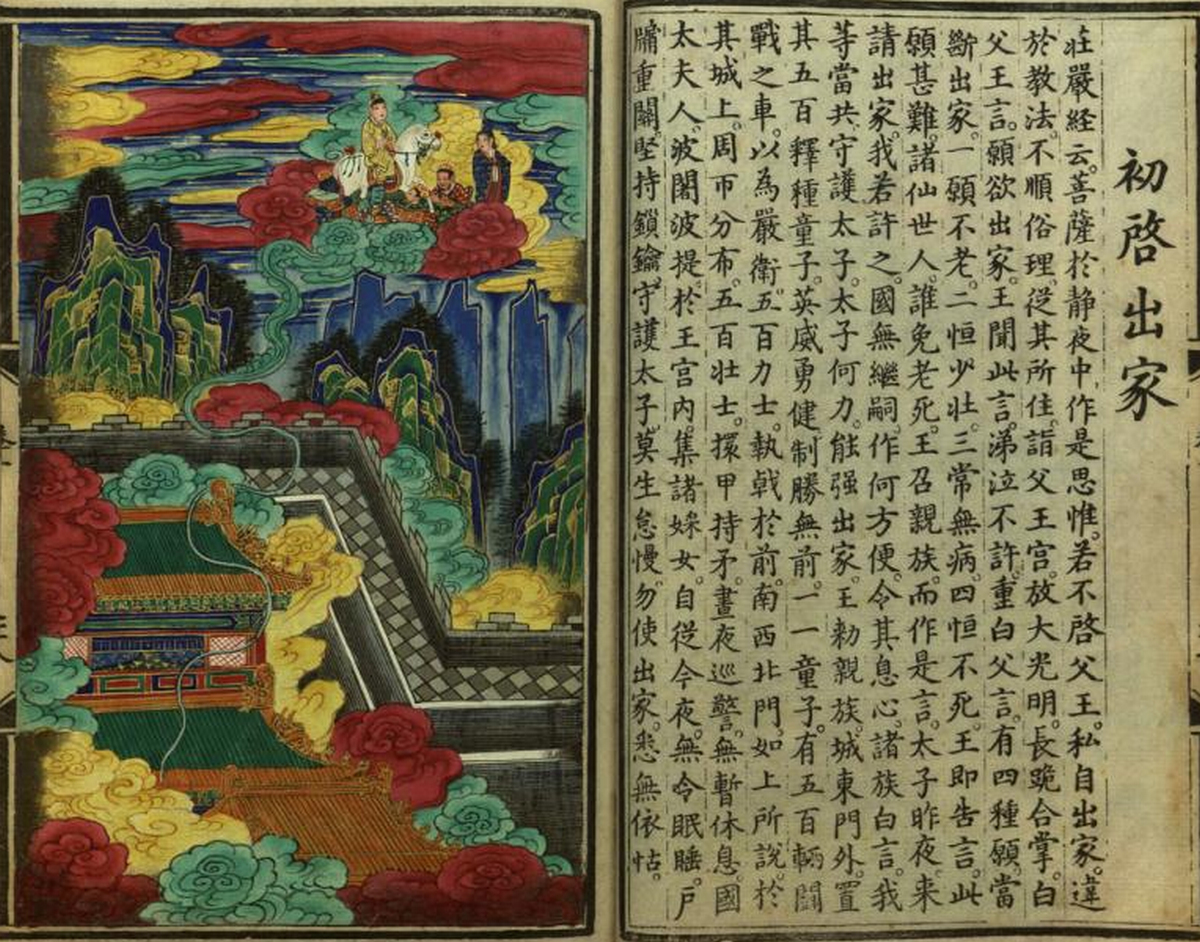 初啓出家
莊嚴経云。菩薩於静夜中,作是思惟。若不啓父王。私自出家。違
於教法。不順俗理。従其所住。詣父王宮。放大光明。長跪合掌。白
父王言。願欲出家。王聞此言。涕泣不許。重白父言。有四種願。當
斷出家。一願不老。二恒少壮。三常無病。四恒不死。王即告言。此
願甚難。諸仙世人。誰免老死。王召親族。而作是言。太子昨夜。来
請出家。我若許之。國無繼嗣。作何方便。令其息心。諸族白言。我
等當共。守護太子。太子何力。能强出家。王勑親族。城東門外。置
其五百釋種童子。英威勇健。制勝無前。一一童子。有五百輌鬪
戰之車。以為嚴衛。五百力士。執戟於前。南西北門。如上所說。於
其城上。周帀分布。五百壮士。擐甲持矛。晝夜巡警。無暫休息。國
太夫人。波闍波提。於王宫内。集諸婇女。自從今夜。無令眠睡。戶
牖重關。堅持鎖鑰。守護太子。莫生怠慢。勿使出家。悉無依怙。